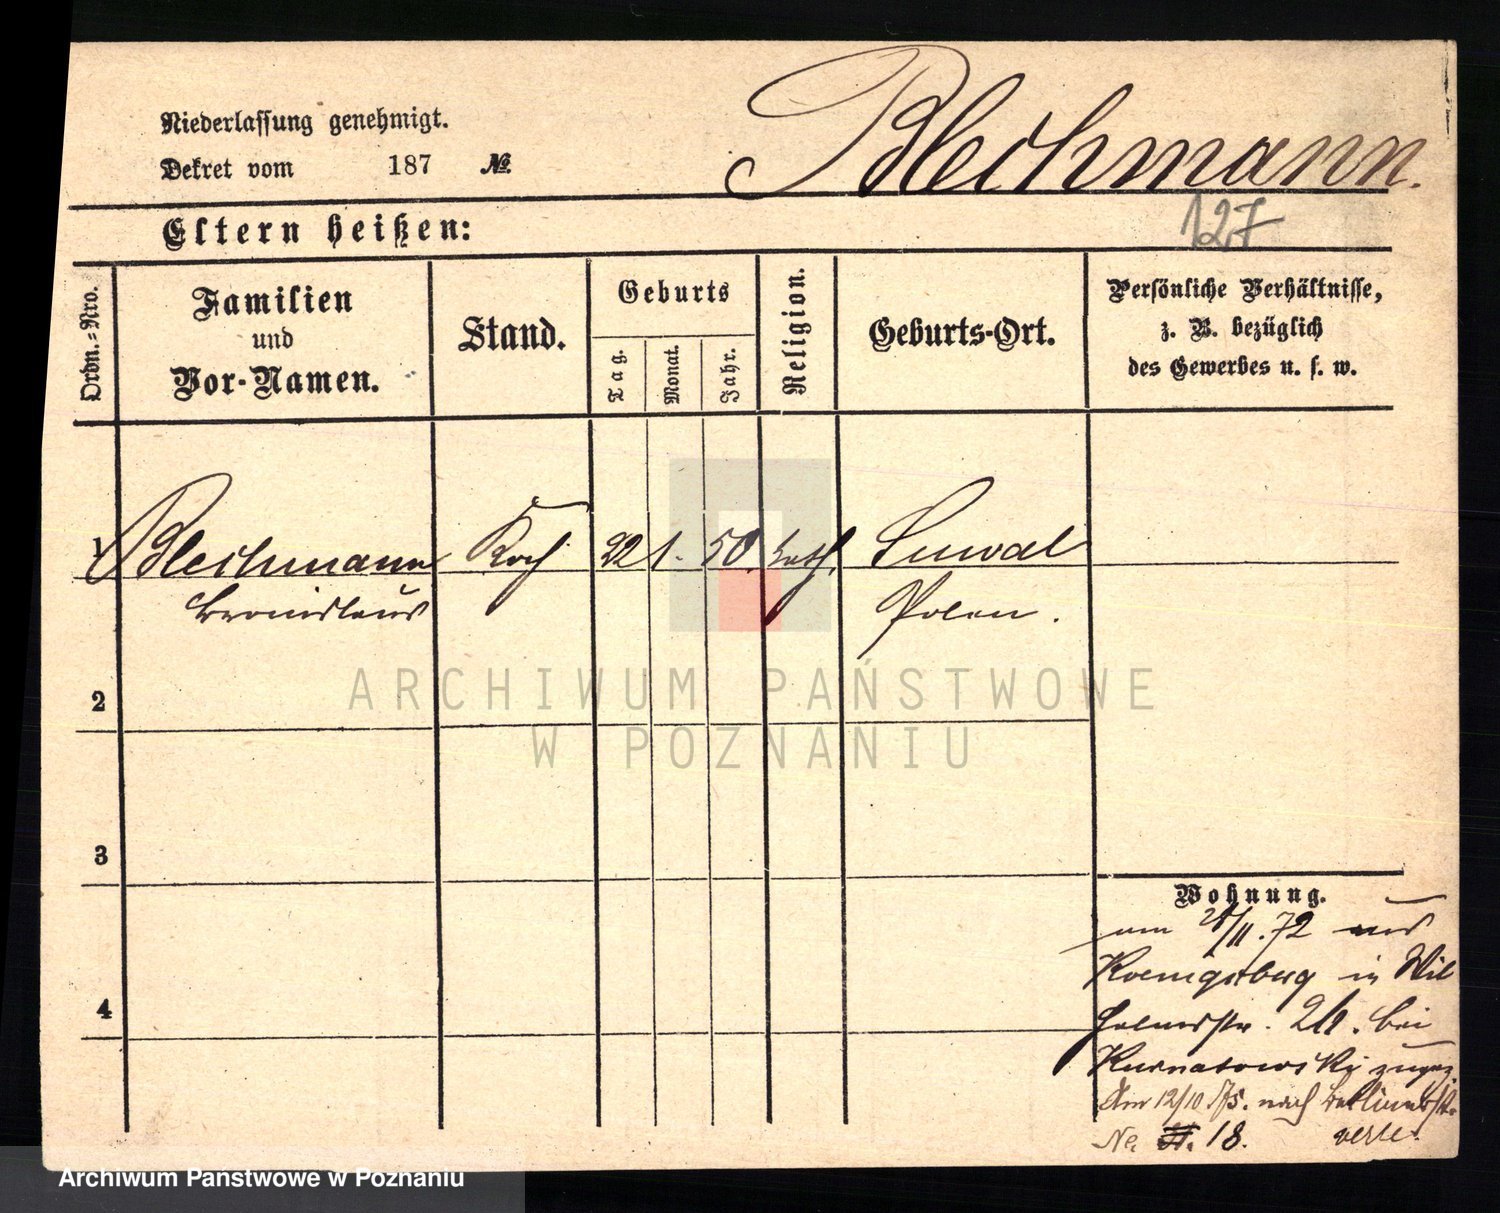 Blechmann.
Niederlassung genehmigt.
Dekret vom 187 №.
127
Eltern heißen:
Ordn.-Nro.
Familien
und
Vor-Namen.
Stand.
Geburts
Tag.
Monat.
Jahr.
Religion.
Geburts-Ort.
Persönliche Verhältnisse,
z. B. bezüglich
des Gewerbes u. s. w.
1 Blechmann Koch 22 1. 50. kath. Suwal
Bronislaus Polen.
2
3
4
Wohnung.
am /11.72 aus
Koenigsberg in Wil
helmsstr. bei
Kurnatowski zugez.
Am 12/10 75. nach Berlinerstr.
No. 18. verte.
ARCHIWUM PAŃSTWOWE
W POZNANIU
Archiwum Państwowe w Poznaniu